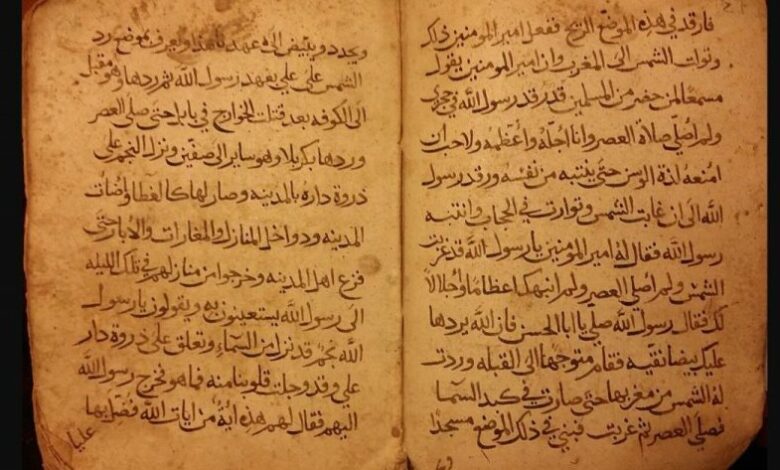 فارقد في هذه الموضع الزبح ففعل امير المومنين ذلك
وتوات الشمس الى المغرب وان امير المومنين يقول
مسمعا لمن حضر من المسلمين قد رقد رسول الله في حجري
ولم اصلي صلاة العصر وانا اجله واعظمه ولا احب ان
امنعه لذة الوسن حتى ينتبه من نفسه ورقد رسول
الله الى ان غابت الشمس وتوارت في الحجاب وانتبه
رسول الله فقال له امير المومنين يا رسول الله قد غربت
الشمس ولم اصلي العصر ولم انبهك اعظاما واجلالا
لك فقال رسول الله صلي يا ابا الحسن فان الله يردها
عليك بيضا نقيه فقام متوجها الى القبله وردت
له الشمس من مغربها حتى صارت في كبد السما
فصلي العصر ثم غربت فبني في ذلك الموضع مسجدا
ويجدد ويبيض الى عهدنا هذا ويعرف بموضع رد
الشمس على علي بعهد رسول الله ثم ردها وهو مقبل
الى الكوفه بعد قتات الخوارج في بابل حتى صلي العصر
وردها بكربلا وهو ساير الى صفين ونزل النجم على
ذروة داره بالمدينه وصار لها كالغطا واضات
المدينه ودواخل المنازل والمغارات والابار حتى
فزع اهل المدينه وخرجوا من منازلهم في تلك الليله
الى رسول الله يستعينون به ويقولون يا رسول
الله نجم قد نزل من السماء وتعلق على ذروة دار
علي وقد وجلت قلوبنا منه فما هو فخرج رسول الله
اليهم فقال لهم هذه اية من ايات الله فضل بها
عليا